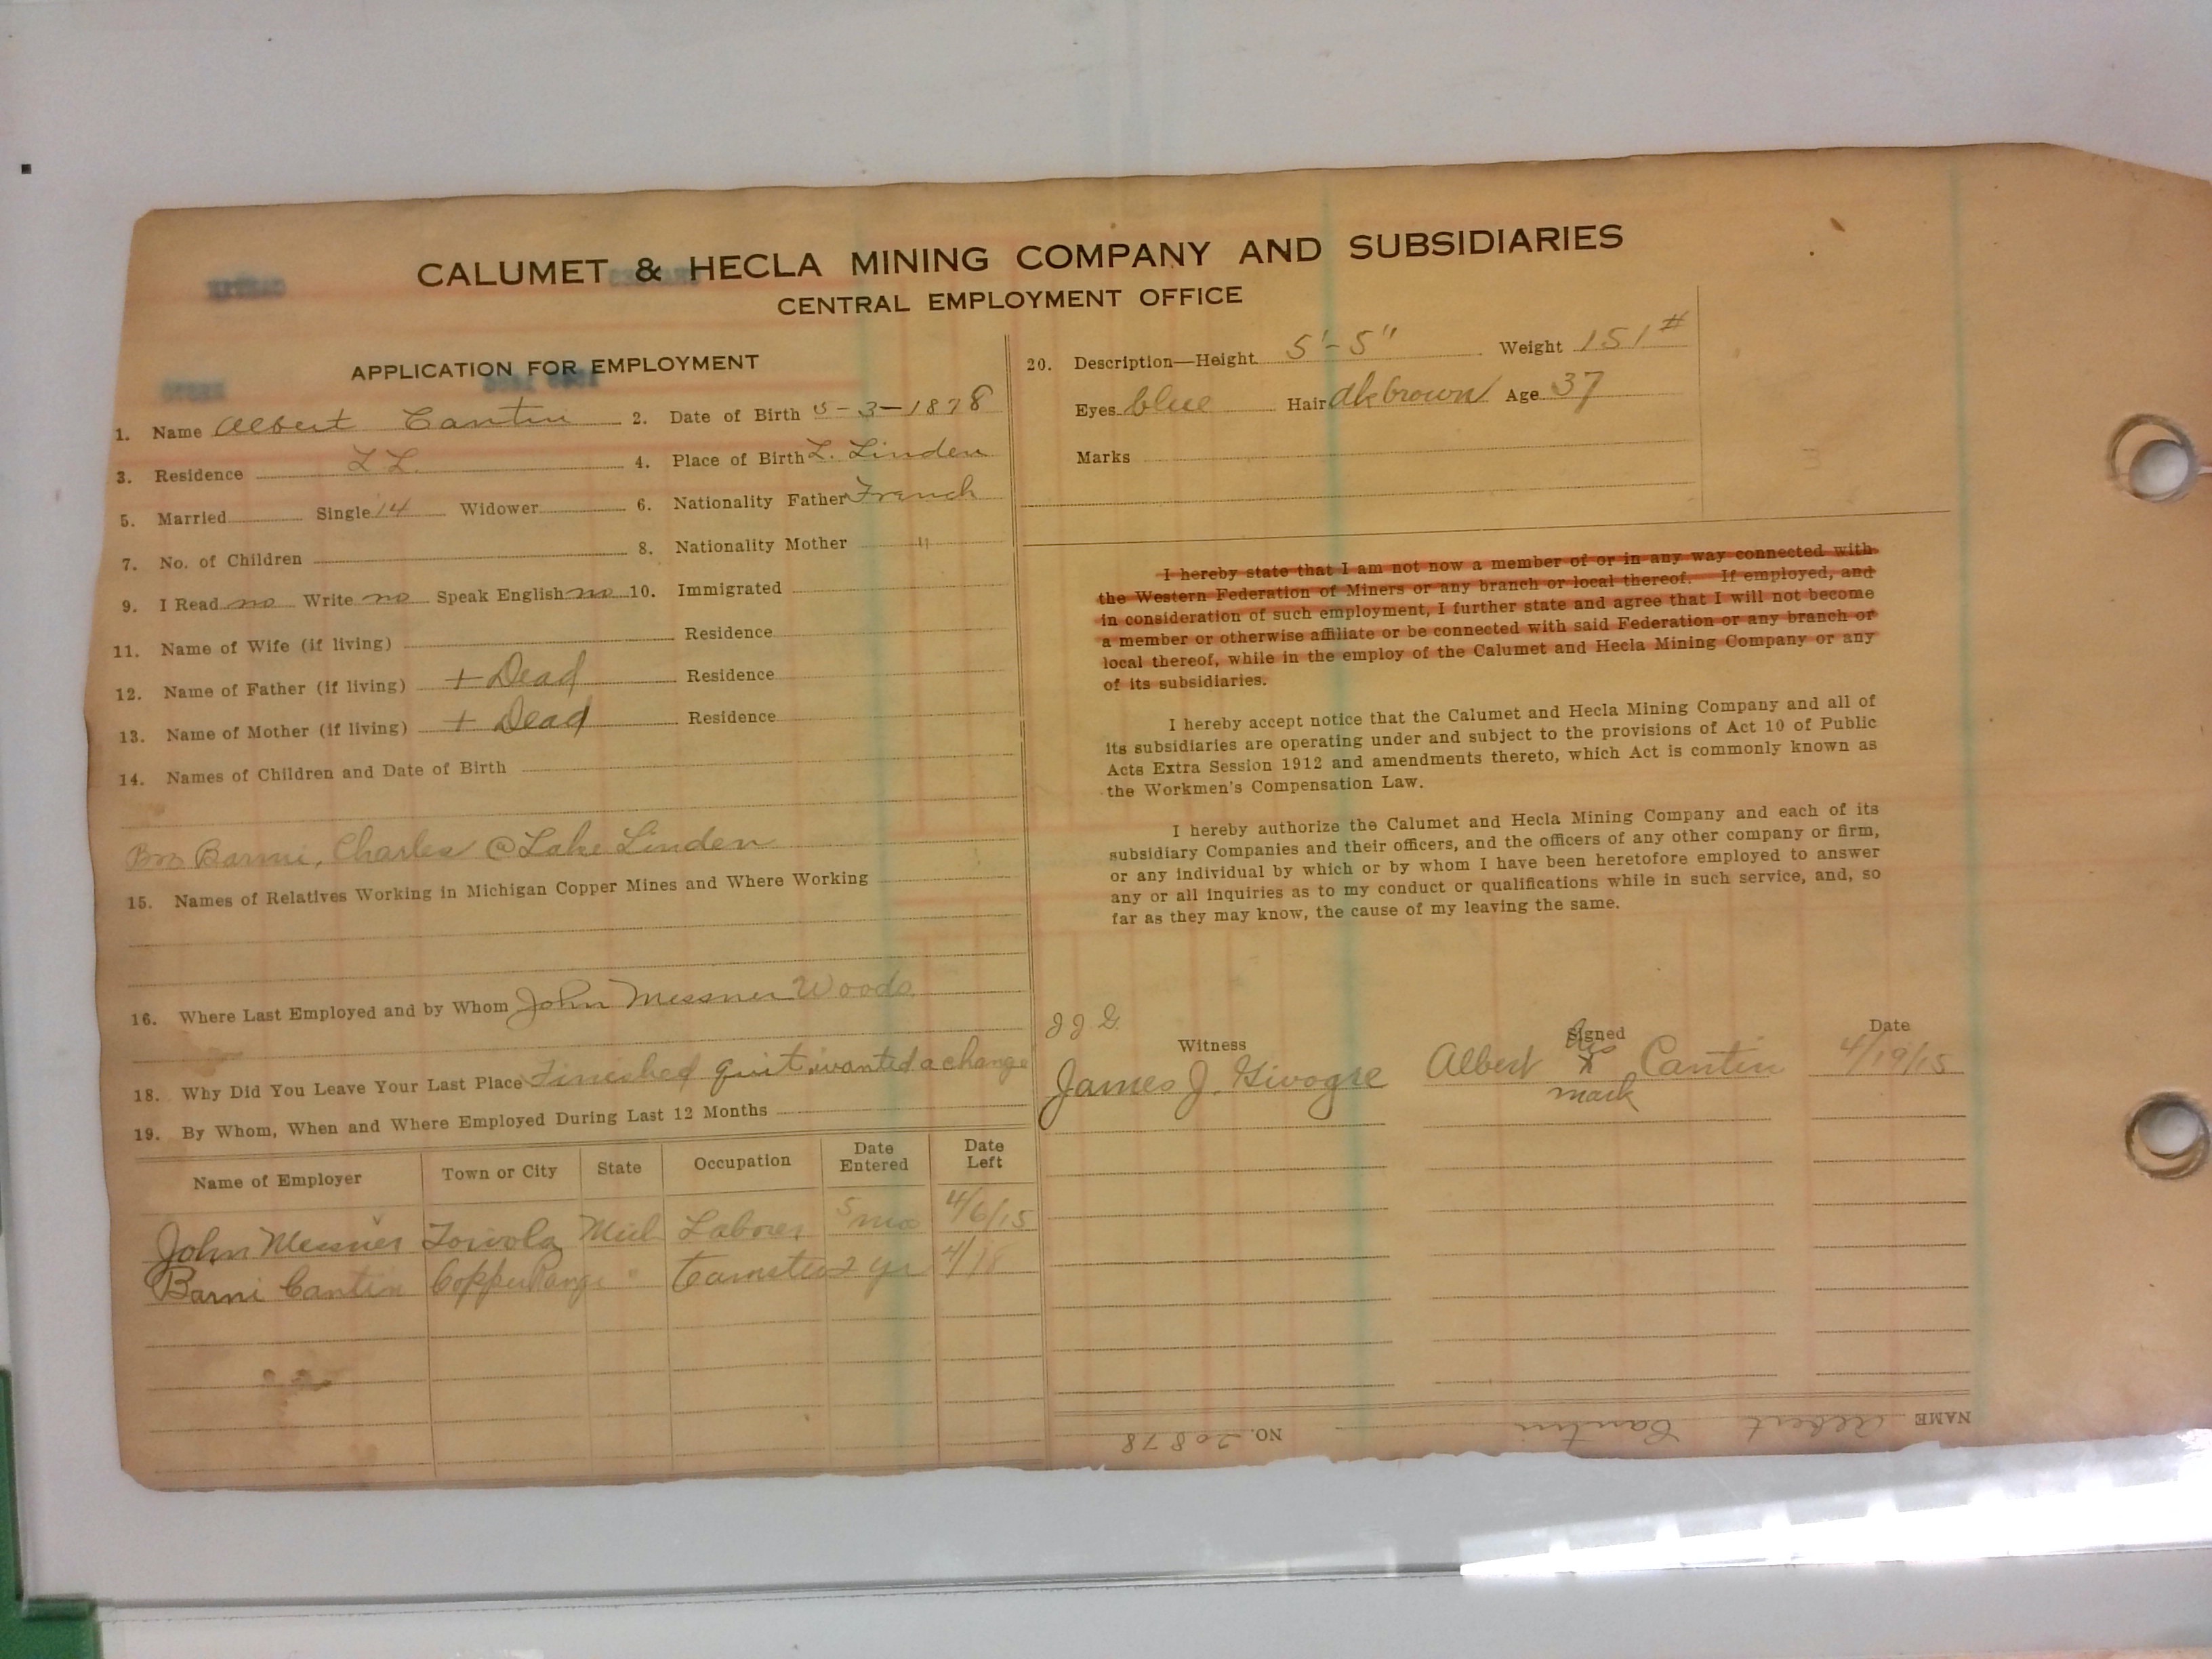 CALUMET & HECLA MINING COMPANY AND SUBSIDIARIES
CENTRAL EMPLOYMENT OFFICE
APPLICATION FOR EMPLOYMENT
1. Name Albert Cantin 2. Date of Birth 5-3-1878
3. Residence L L. 4. Place of Birth L. Linden
5. Married Single 14 Widower 6. Nationality Father French
7. No. of Children 8. Nationality Mother "
9. I Read no Write no Speak English no 10. Immigrated
11. Name of Wife (if living) Residence
12. Name of Father (if living) + Dead Residence
13. Name of Mother (if living) + Dead Residence
14. Names of Children and Date of Birth
Bro Barni, Charles @ Lake Linden
15. Names of Relatives Working in Michigan Copper Mines and Where Working
16. Where Last Employed and by Whom John Messner Woods
18. Why Did You Leave Your Last Place Finished quit wanted a change
19. By Whom, When and Where Employed During Last 12 Months
Name of Employer Town or City State Occupation Date Entered Date Left
John Messner Toivola Mich Laborer 5 mo 4/6/15
Barni Cantin Copper Range " Teamster 2 yr 4/18
20. Description—Height 5'-5" Weight 151#
Eyes blue Hair dk brown Age 37
Marks
I hereby state that I am not now a member of or in any way connected with
the Western Federation of Miners or any branch or local thereof. If employed, and
in consideration of such employment, I further state and agree that I will not become
a member or otherwise affiliate or be connected with said Federation or any branch or
local thereof, while in the employ of the Calumet and Hecla Mining Company or any
of its subsidiaries.
I hereby accept notice that the Calumet and Hecla Mining Company and all of
its subsidiaries are operating under and subject to the provisions of Act 10 of Public
Acts Extra Session 1912 and amendments thereto, which Act is commonly known as
the Workmen's Compensation Law.
I hereby authorize the Calumet and Hecla Mining Company and each of its
subsidiary Companies and their officers, and the officers of any other company or firm,
or any individual by which or by whom I have been heretofore employed to answer
any or all inquiries as to my conduct or qualifications while in such service, and, so
far as they may know, the cause of my leaving the same.
J J G.
Witness Signed Date
James J. Albert his x mark Cantin 4/19/15
NAME Albert Cantin NO. 20878